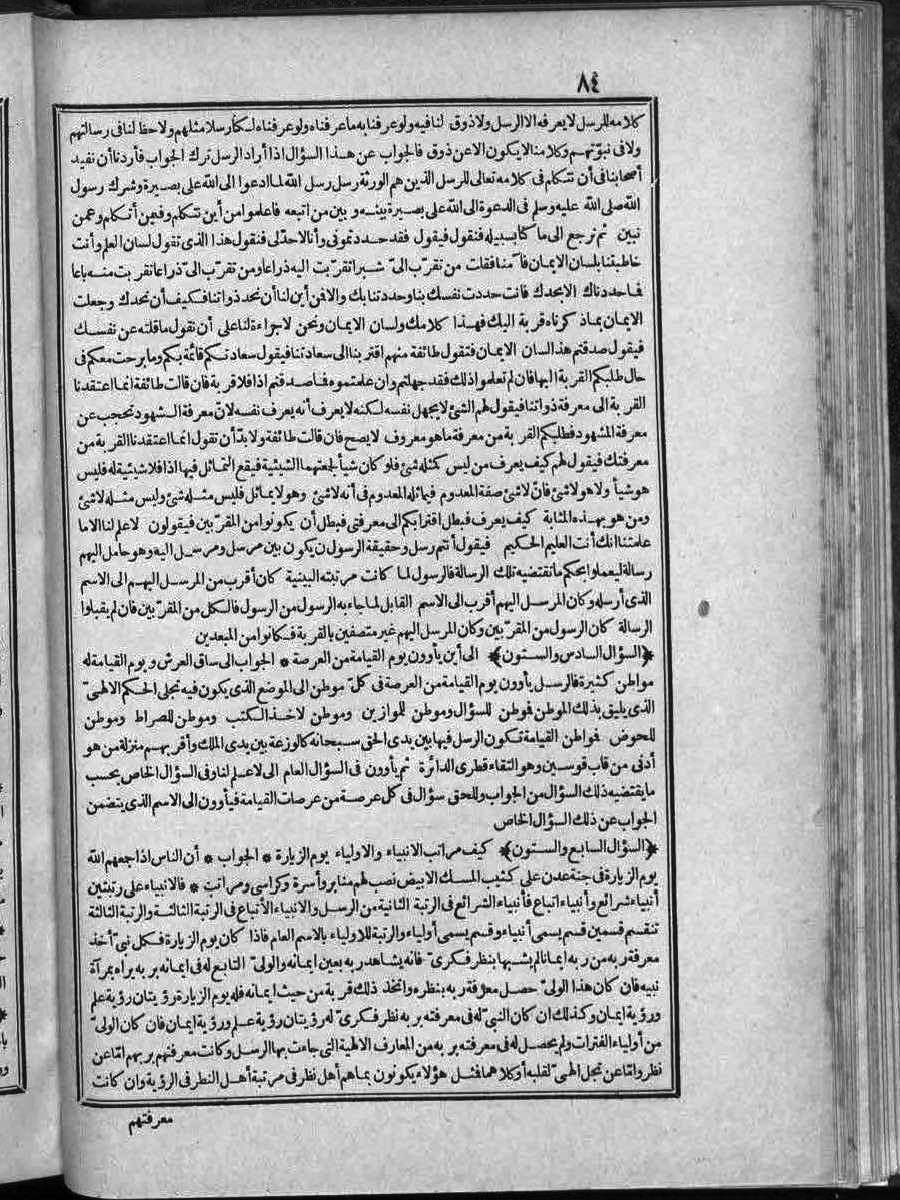 ٨٤
كلامه للرسل لا يعرفه الا الرسل ولا ذوق لنا فيه ولو عرفنا به ما عرفناه ولو عرفناه لكنا رسلا مثلهم ولا حظ لنا في رسالتهم
ولا في نبوّتهم وكلامنا لا يكون الا عن ذوق فالجواب عن هذا السؤال اذا أراد الرسل ترك الجواب فأردنا أن نفيد
أصحابنا في أن نتكلم في كلامه تعالى للرسل الذين هم الورثة رسل رسل الله لما ادعوا الى الله على بصيرة وشرك رسول
الله صلى الله عليه وسلم في الدعوة الى الله على بصيرة بينه وبين من اتبعه فاعلموا من أين نتكلم وفيمن أتكلم وعمن
نبين ثم نرجع الى ما كنا بسبيله فنقول فيقول فقد حددتموني وأنا لا حدّ لي فنقول هذا الذي تقول لسان العلم وأنت
خاطبتنا بلسان الايمان فآمنا فقلت من تقرّب الىّ شبرا تقرّبت اليه ذراعا ومن تقرّب الىّ ذراعا تقربت منه باعا
فما حددناك الا بحدك فانت حددت نفسك بنا وحددتنا بك والا فمن أين لنا أن نحد ذواتنا فكيف أن نحدك وجعلت
الايمان بما ذكرناه قربة اليك فهذا كلامك ولسان الايمان ونحن لا جراءة لنا على أن نقول ما قلته عن نفسك
فيقول صدقتم هذا لسان الايمان فتقول طائفة منهم اقتربنا الى سعادتنا فيقول سعادتكم قائمة بكم وما برحت معكم في
حال طلبكم القربة اليها فان لم تعلموا ذلك فقد جهلتم وان علمتموه فما صدقتم اذا فلا قربة فان قالت طائفة انما اعتقدنا
القربة الى معرفة ذواتنا فيقول لهم الشئ لا يجهل نفسه لكنه لا يعرف أنه يعرف نفسه لانّ معرفة الشهود تحجب عن
معرفة المشهود فطلبكم القربة من معرفة ما هو معروف لا يصح فان قالت طائفة ولا بدّ أن تقول انما اعتقدنا القربة من
معرفتك فيقول لهم كيف يعرف من ليس كمثله شئ فلو كان شيأ لجعتهما الشيئية فيقع التماثل فيها اذا فلا شيئية له فليس
هو شيأ ولا هو لا شئ فانّ لا شئ صفة المعدوم فيماثله المعدوم في أنه لا شئ وهو لا يماثل فليس مثله شئ وليس مثله لا شئ
ومن هو بهذه المثابة كيف يعرف فبطل اقترابكم الى معرفتي فبطل أن يكونوا من المقرّبين فيقولون لا علم لنا الا ما
علمتنا انك أنت العليم الحكيم فيقول أنتم رسل وحقيقة الرسول ن يكون بين مرسل ومرسل اليه وهو حامل اليهم
رسالة ليعملوا بحكم ما تقتضيه تلك الرسالة فالرسول لما كانت مرتبته البينية كان أقرب من المرسل اليهم الى الاسم
الذي أرسله وكان المرسل اليهم أقرب الى الاسم القابل لما جاء به الرسول من الرسول فالكل من المقرّبين فان لم يقبلوا
الرسالة كان الرسول من المقرّبين وكان المرسل اليهم غير متصفين بالقربة فكانوا من المبعدين
﴿السؤال السادس والستون﴾ الى أين يأوون يوم القيامة من العرصة * الجواب الى ساق العرش ويوم القيامة له
مواطن كثيرة فالرسل يأوون يوم القيامة من العرصة في كلّ موطن الى الموضع الذي يكون فيه تجلى الحكم الالهىّ
الذي يليق بذلك الموطن فوطن للسؤال وموطن للموازين وموطن لاخذ الكتب وموطن للصراط وموطن
للحوض فواطن القيامة تكون الرسل فيها بين يدى الحق سبحانه كالوزعة بين يدى الملك وأقربهم منزلة من هو
أدنى من قاب قوسين وهو التقاء قطرى الدائرة ثم يأوون في السؤال العام الى لا علم لنا وفي السؤال الخاص بحسب
ما يقتضيه ذلك السؤال من الجواب وللحق سؤال في كل عرصة من عرصات القيامة فيأوون الى الاسم الذي يتضمن
الجواب عن ذلك السؤال الخاص
﴿السؤال السابع والستون﴾ كيف مراتب الانبياء والاولياء يوم الزيارة * الجواب * أن الناس اذا جعهم الله
يوم الزيارة في جنة عدن على كثيب المسك الابيض نصب لهم منابر وأسرة وكراسي ومراتب * فالانبياء على رتبتين
أنبياء شرائع وأنبياء اتباع فأنبياء الشرائع في الرتبة الثانية من الرسل والانبياء الأتباع في الرتبة الثالثة والرتبة الثالثة
تنقسم قسمين قسم يسمى أنبياء وقسم يسمى أولياء والرتبة للاولياء بالاسم العام فاذا كان يوم الزيارة فكل نبىّ أخذ
معرفة ربه من ربه ايمانا لم يشبها بنظر فكرىّ فانه يشاهد ربه بعين ايمانه والولىّ التابع له في ايمانه بربه يراه بمرآة
نبيه فان كان هذا الولىّ حصل معرفة ربه بنظره واتخذ ذلك قربة من حيث ايمانه فله يوم الزيارة رؤيتان رؤية علم
ورؤية ايمان وكذلك ان كان النبىّ له في معرفته بربه نظر فكرىّ له رؤيتان رؤية علم ورؤية ايمان فان كان الولىّ
من أولياء الفترات ولم يحصل له في معرفته بربه من المعارف الالهية التي جاءت بها الرسل وكانت معرفتهم بربهم امّا عن
نظر وامّا عن تجل الهىّ لقلبه أو كلاهما فمثل هؤلاء يكونون بما هم أهل نظر في مرتبة أهل النظر في الرؤية وان كانت
معرفتهم